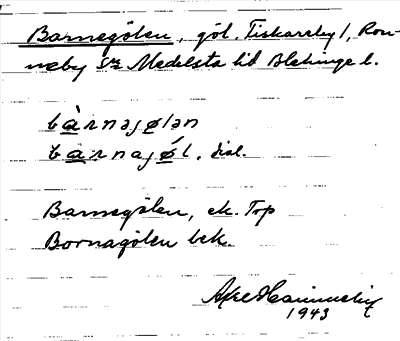 Barnegölen, göl. Tiskareby 1, Ron-
neby sn Medelsta hd Blekinge l.
bàrnəjølən
bàrnajǿl, dial.
Barnegölen, ek. Top
Bornagölen bek.
Axel
1943